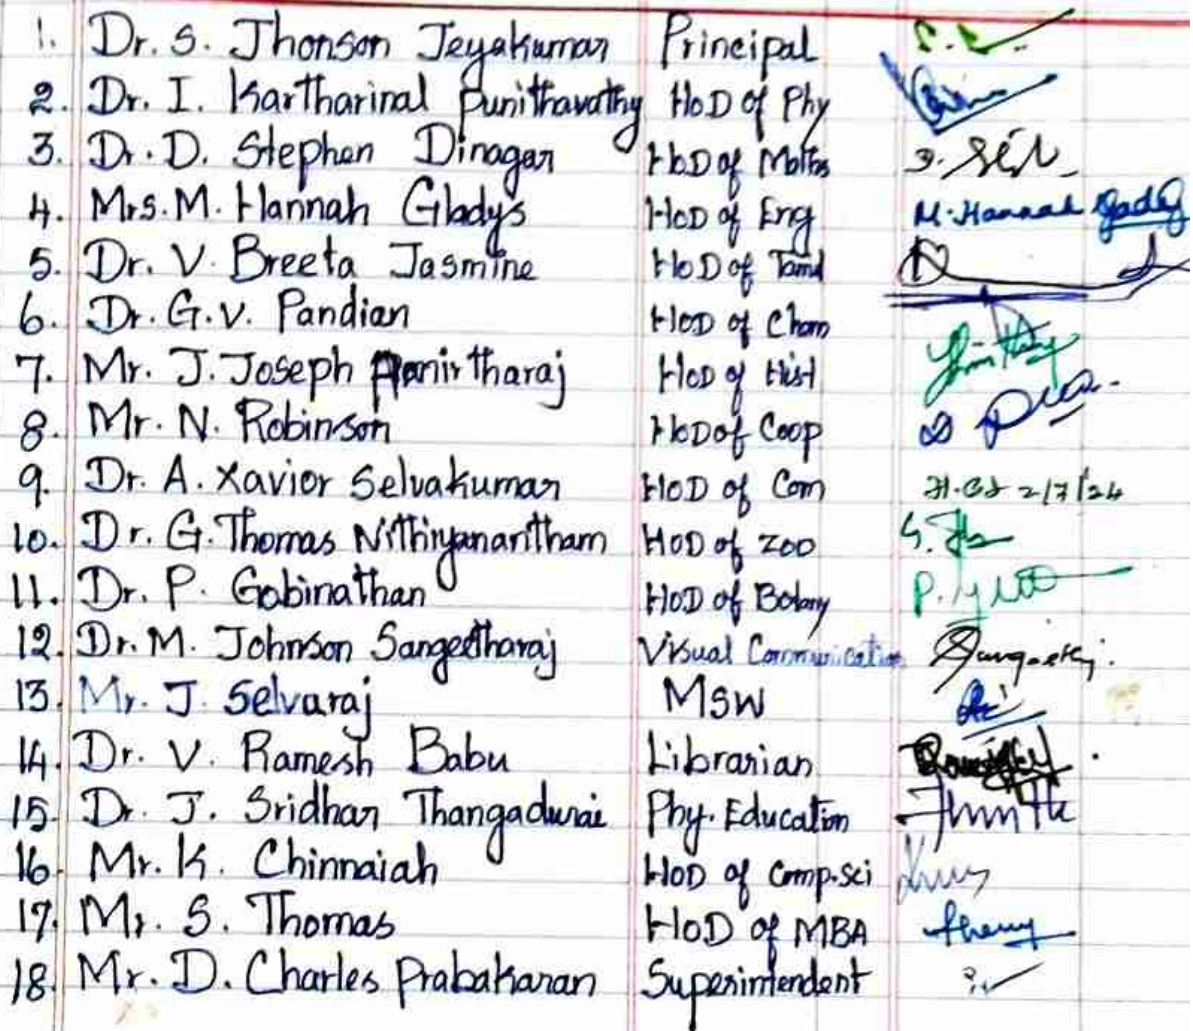 1. Dr. S. Jhonson Jeyakumar Principal
2. Dr. I. Kartharinal Punithavathy HoD of Phy
3. Dr. D. Stephen Dinagar HoD of Maths
4. Mrs. M. Hannah Gladys HoD of Eng M. Hannah Gladys
5. Dr. V. Breeta Jasmine HoD of Tamil
6. Dr. G.V. Pandian HoD of Chem
7. Mr. J. Joseph Amirtharaj HoD of Hist
8. Mr. N. Robinson HoD of Coop
9. Dr. A. Xavior Selvakumar HoD of Com 2/7/24
10. Dr. G. Thomas Nithiyanantham HoD of Zoo
11. Dr. P. Gobinathan HoD of Botany
12. Dr. M. Johnson Sangeetharaj Visual Communication
13. Mr. J. Selvaraj MSW
14. Dr. V. Ramesh Babu Librarian
15. Dr. J. Sridhar Thangadurai Phy. Education
16. Mr. K. Chinnaiah HoD of Comp.sci
17. Mr. S. Thomas HoD of MBA
18. Mr. D. Charles Prabakaran Superintendent